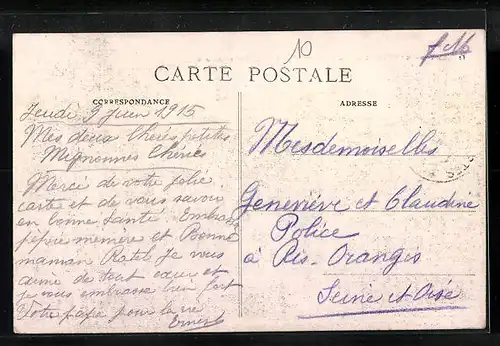 10
F M
CARTE POSTALE
CORRESPONDANCE
ADRESSE
Jeudi 9 Juin 1915
Mes deux Chères petites
Mignonnes Chéries
Merci de votre jolie
carte et de vous savoir
en bonne santé. Embrassez
pépère mémère et Bonne
maman Je vous
aime de tout cœur et
je vous embrasse bien fort
Votre papa pour la vie
Ernest
Mesdemoiselles
Geneviève et Claudine
Police
à Ris-Orangis
Seine et Oise